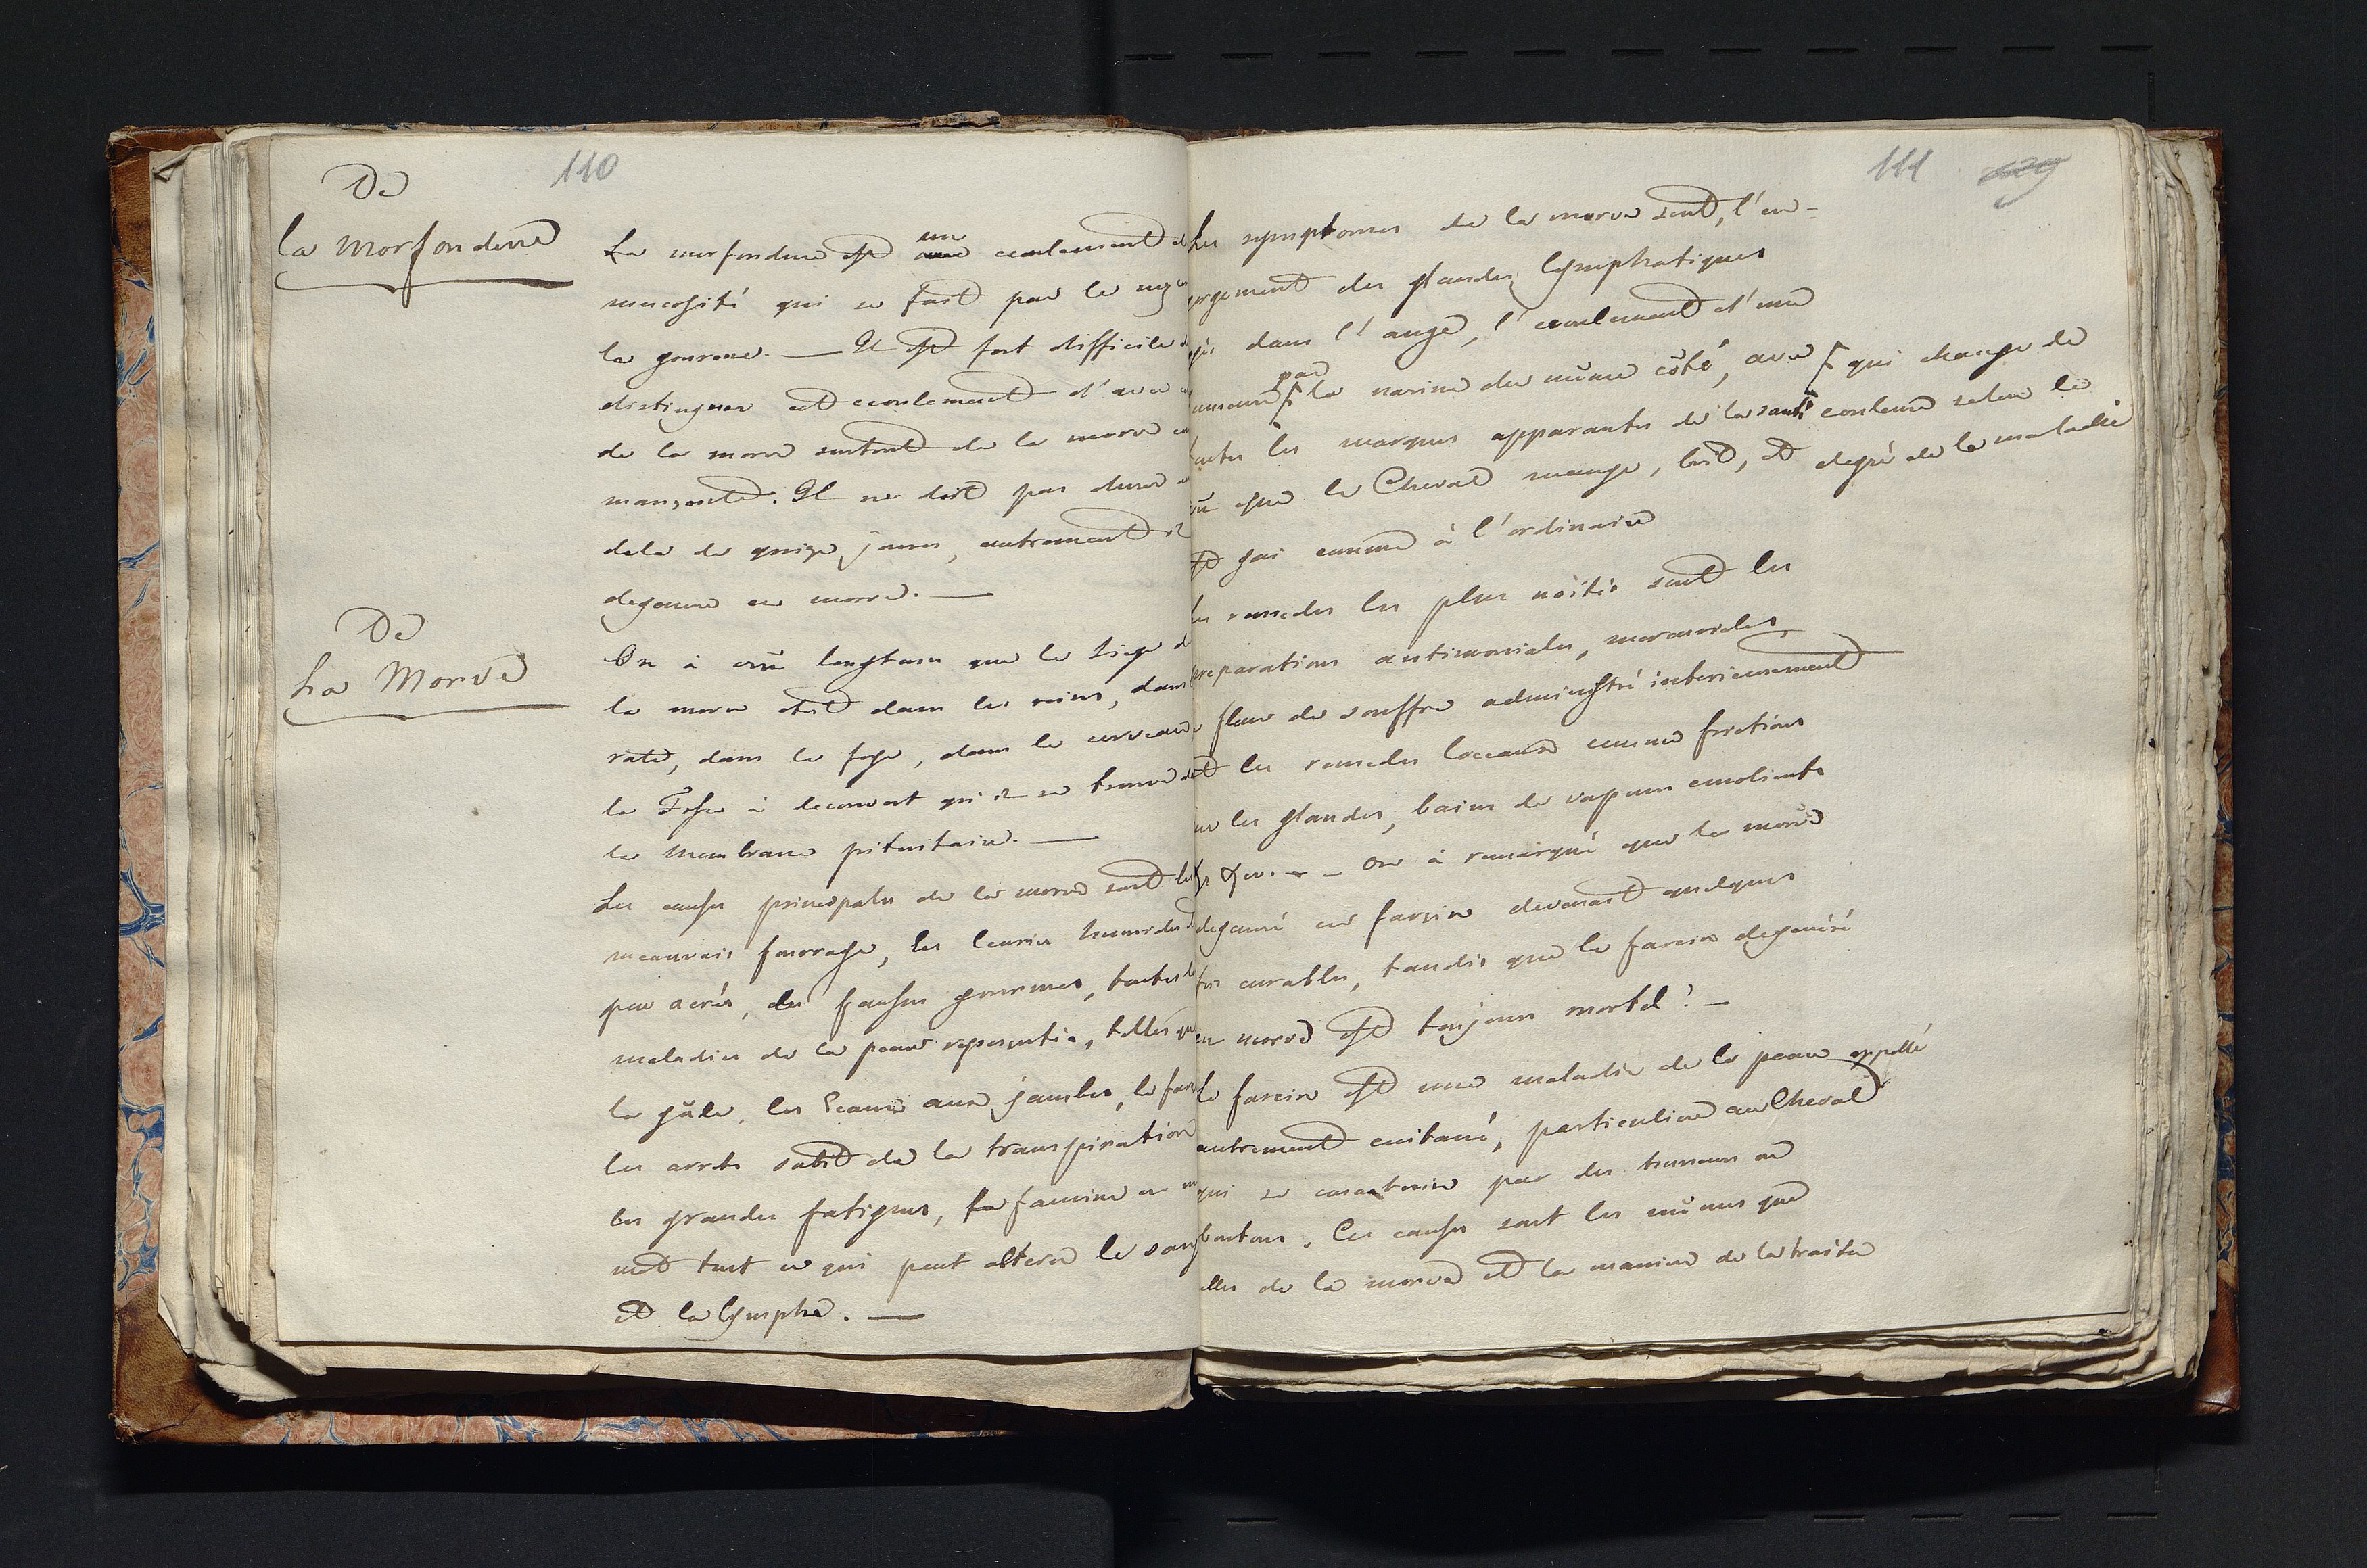 110
De
la Morfondure
La morfondure est un ecoulement d
mucosité qui se fait par le nez
la gourme. — Il est fort difficile d
distinguer cet ecoulement d'avec
de la morve surtout de la morve
Il ne doit pas durer
dela de quinze jours, autrement il
degenere en morve. —
De
La Morve
On à cru longtems que le Siege d
la morve etoit dans les reins, dans
rate, dans le foye, dans le cerveau
la Fosse à decouvert qu'il se trouve
la Membrane pituitaire. —
Les causes principales de la morve sont les
mauvais fourrage, les Ecuries humides
peu aerés, les fausses gourmes, toutes l
maladies de la peau repercutés, telles que
la gâle, les Eaux aux jambes, le farc
les arrets subit de la transpiration
les grandes fatigues, la famine en
mot tout ce qui peut alterer le sang
et la lymphe. —
111 129
Les symptomes de la morve sont, l'en-
orgement des glandes lymphatiques
dans l'auge, l'ecoulement d'une
par la narine du même côté, avec qui change de
toutes les marques apparantes de la santé couleur selon le
que le Cheval mange, boit, et degré de la maladie
est gai comme à l'ordinaire
les remedes les plus usités sont les
preparations antimoniales, mercurielles
fleur de souffre administré interieurement
et les remedes locaux comme frictions
sur les glandes, bains de vapeurs emolients
&c. — On à remarqué que la morve
degeneré en farcin devenait quelques
fois curables, tandis que le farcin degeneré
en morve est toujours mortel! —
Le farcin est une maladie de la peau appellé
autrement cuitané, particuliere au Cheval
qui se caracterise par des tumeurs ou
boutons. Ces causes sont les mêmes que
elles de la morve et la maniere de la traiter